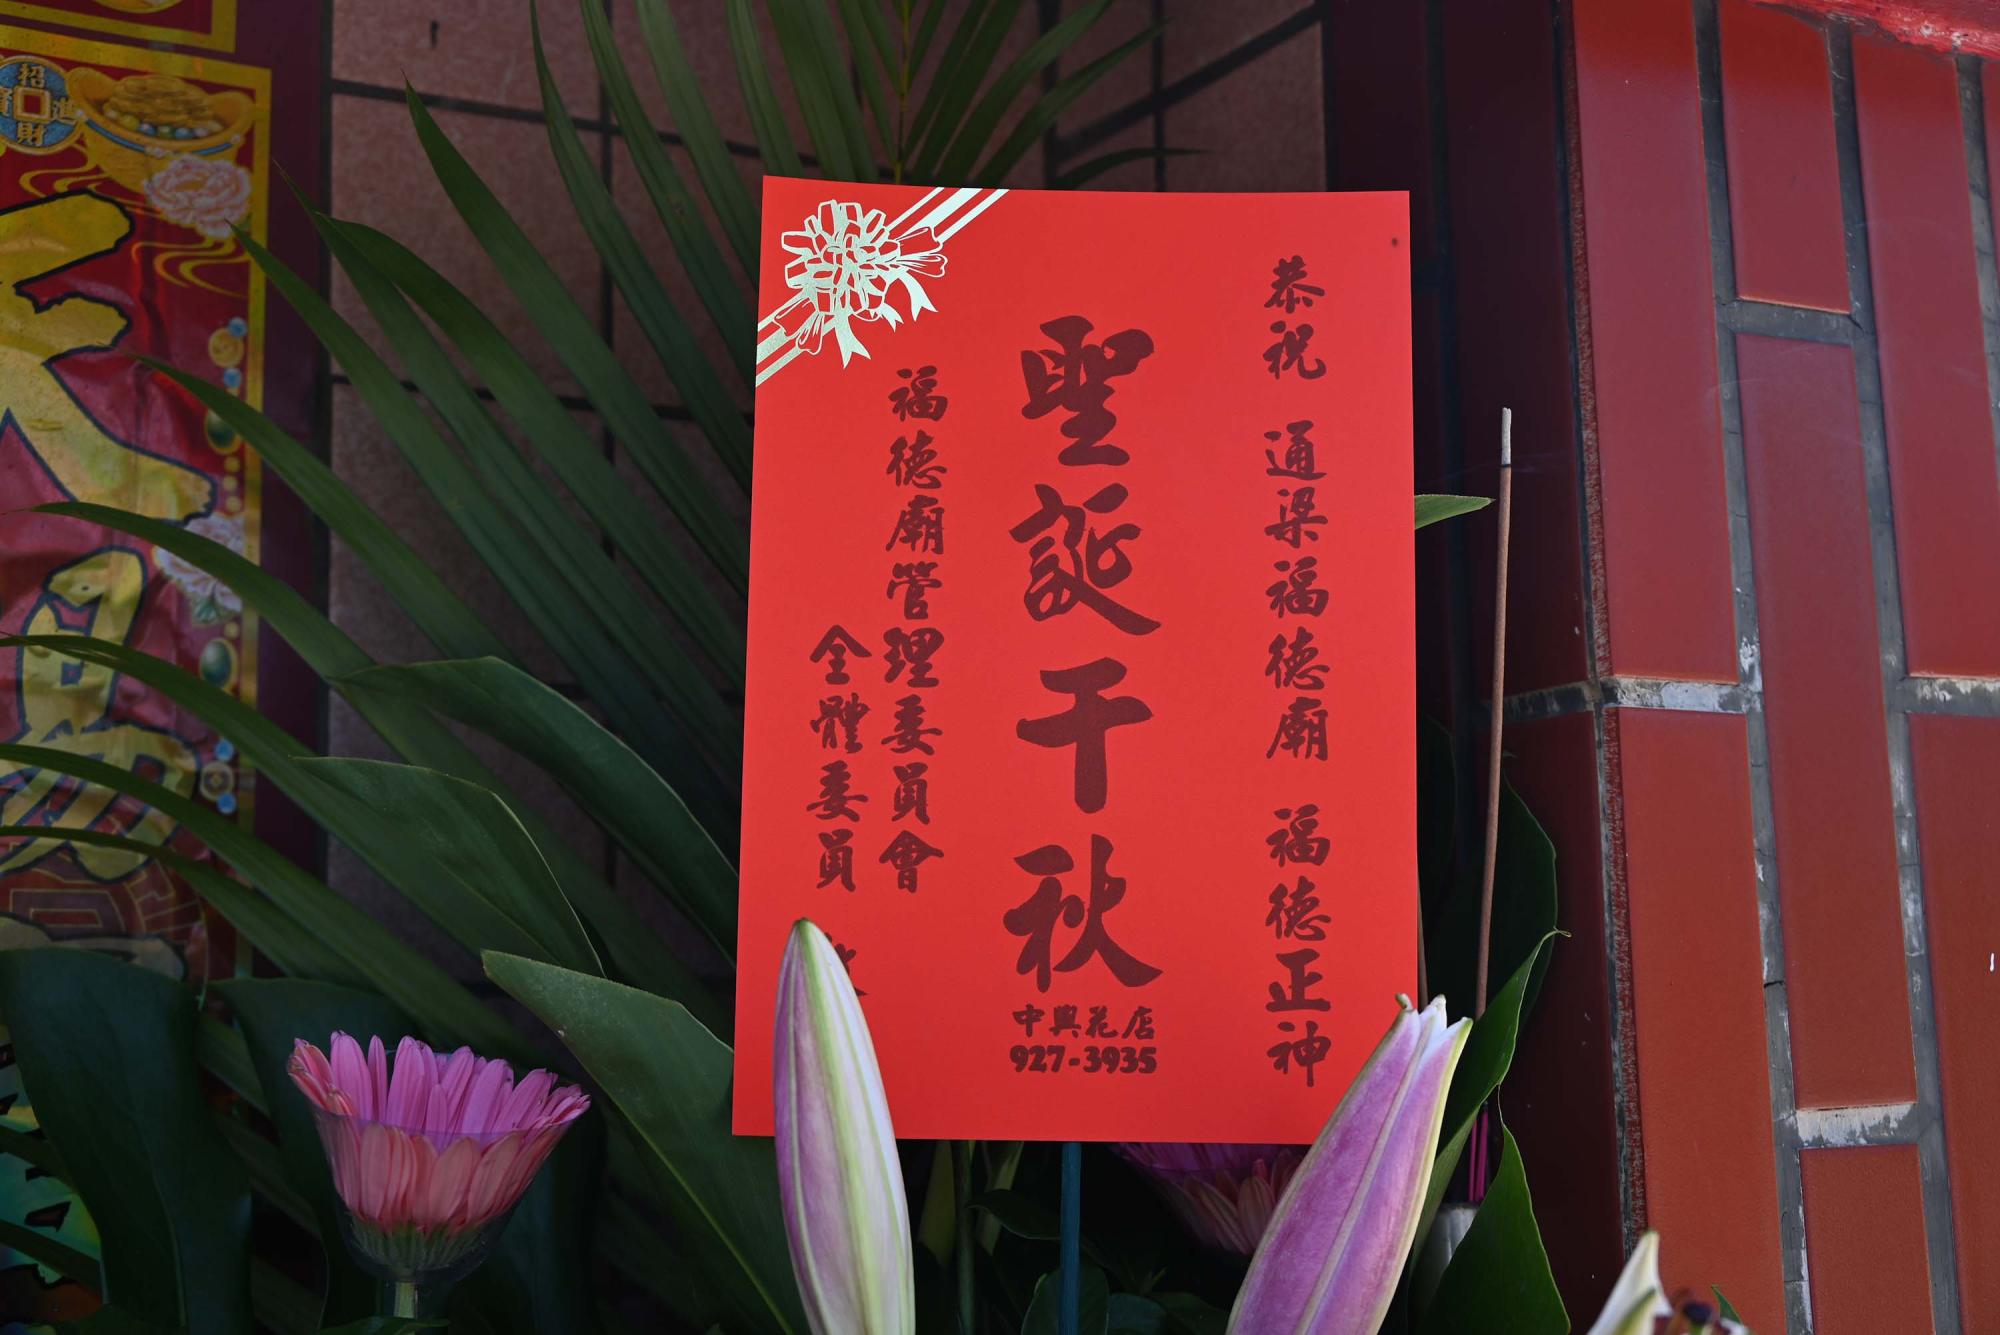 恭祝 通梁福德廟 福德正神
聖誕千秋
福德廟管理委員會
全體委員
中興花店
927-3935
招財進寶